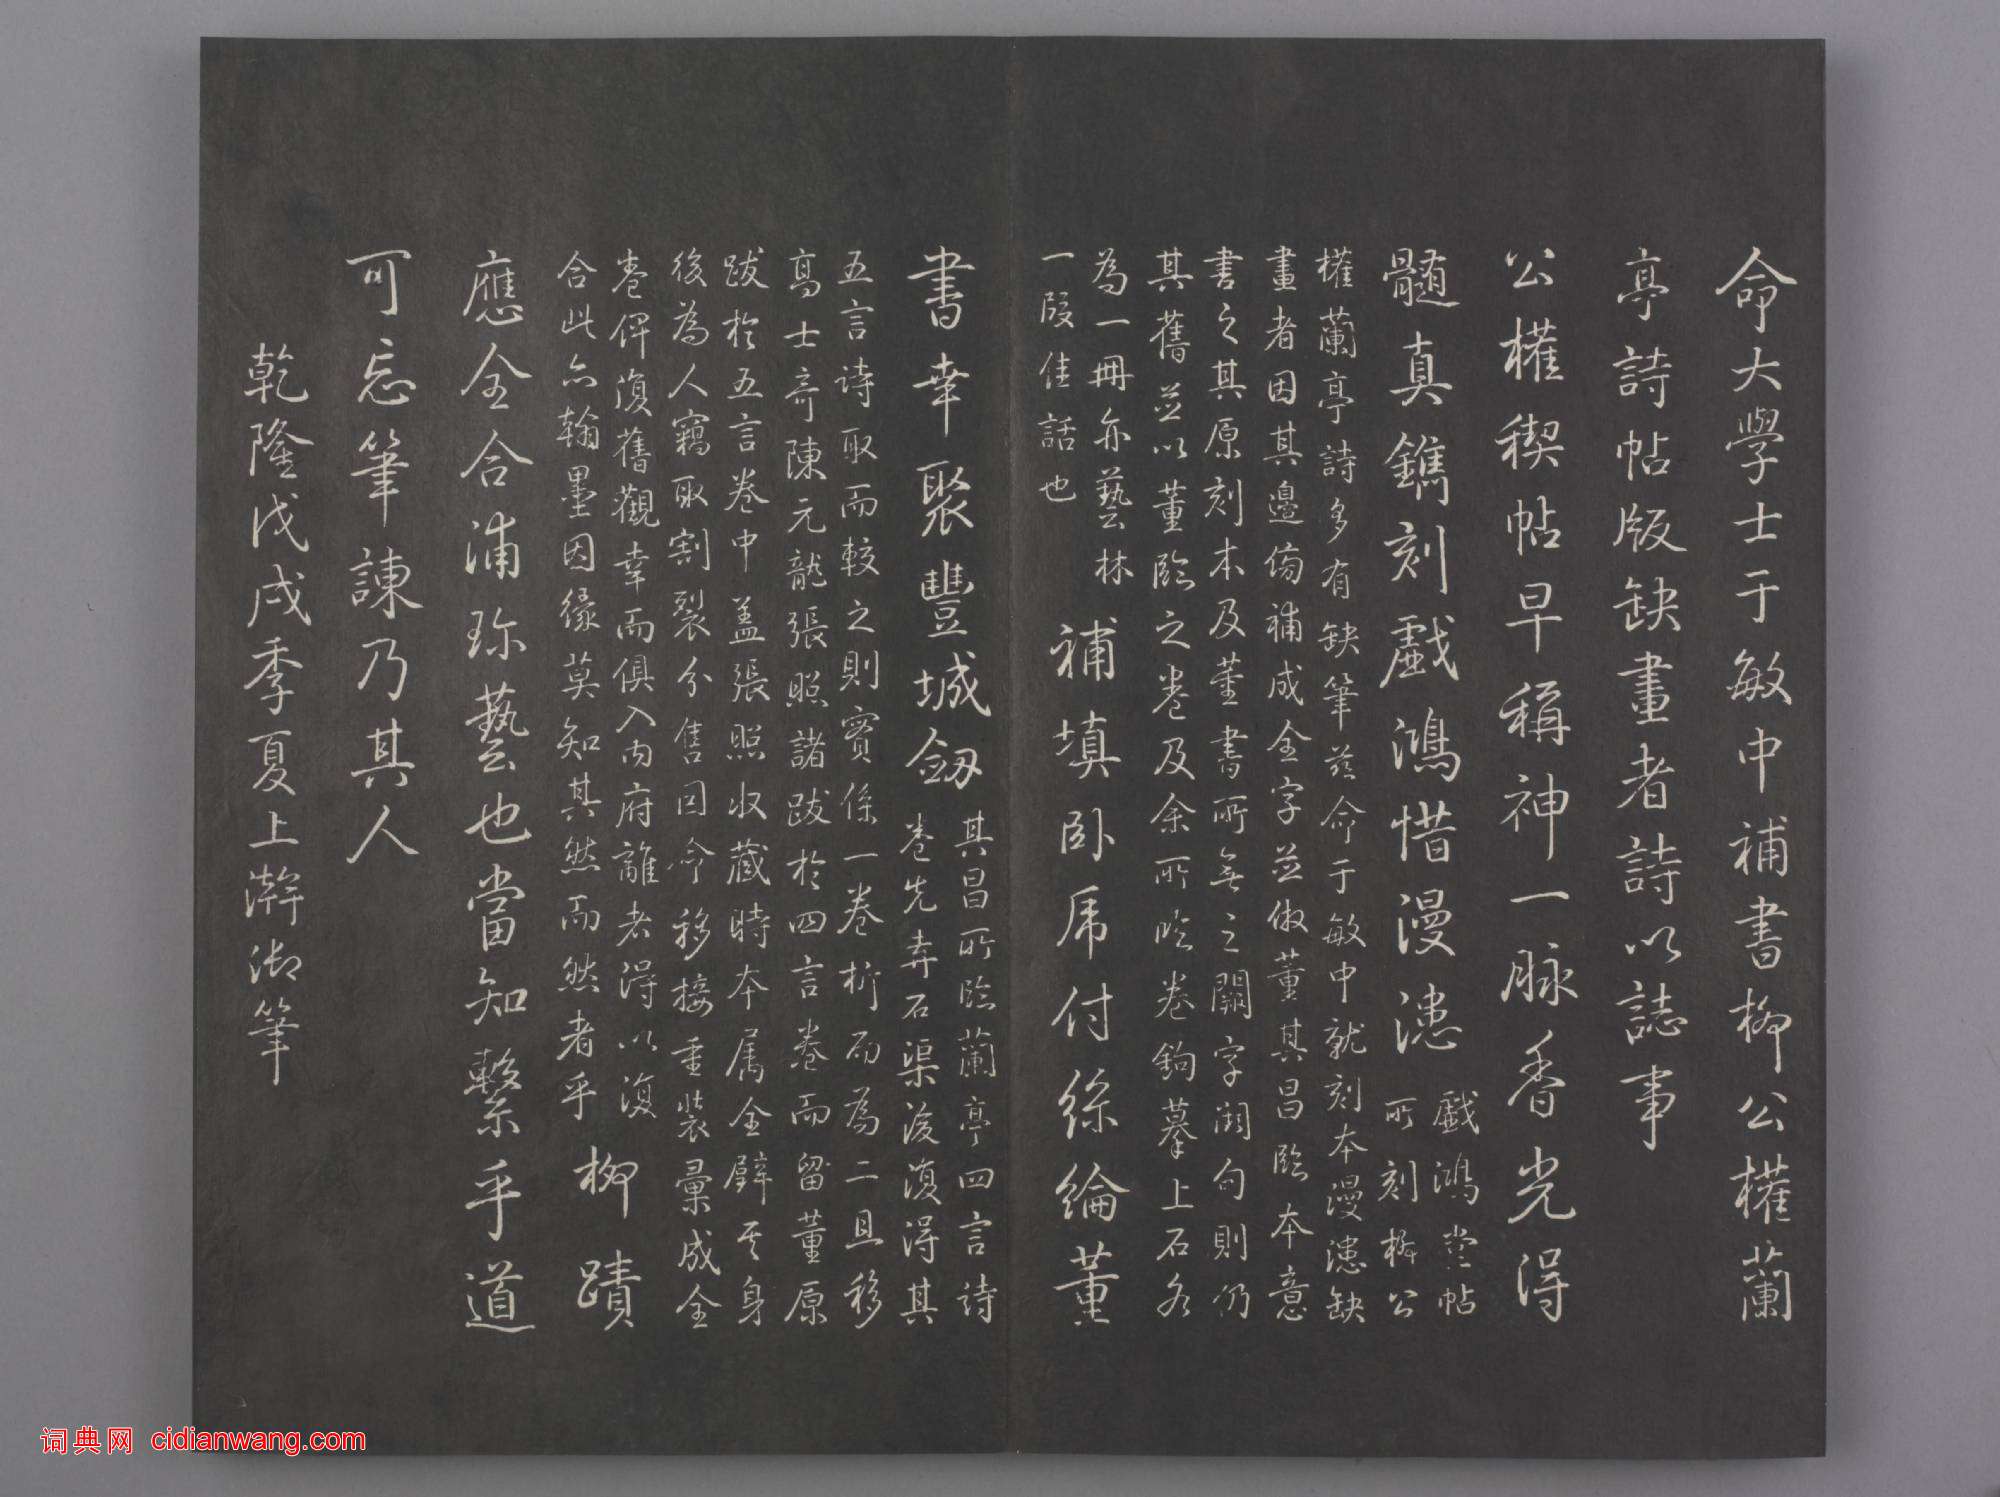 命大學士于敏中補書柳公權蘭
亭詩帖版缺畫者詩以誌事
公權稧帖早稱神一脉香光得
髓真鐫刻戲鴻惜漫漶
戲鴻堂帖
所刻柳公
權蘭亭詩多有缺筆茲命于敏中就刻本漫漶缺
畫者因其邊傍補成全字並倣董其昌臨本意
書之其原刻本及董書所無之闕字闕句則仍
其舊並以董臨之卷及余所臨卷鉤摹上石各
為一冊亦藝林
一段佳話也
補填卧虎付絲綸董
書幸聚豐城劔
其昌所臨蘭亭四言詩
卷先弆石渠後復得其
五言詩取而較之則實係一卷析而為二且移
高士奇陳元龍張照諸跋於四言卷而留董原
跋於五言卷中盖張照收藏時本属全璧其身
後為人竊取割裂分售因命移接重裝彙成全
卷俾復舊觀幸而俱入内府離者得以復
合此亦翰墨因緣莫知其然而然者乎
柳蹟
應全合浦珎藝也當知繫乎道
可忘筆諫乃其人
乾隆戊戌季夏上澣御筆
词典网 cidianwang.com